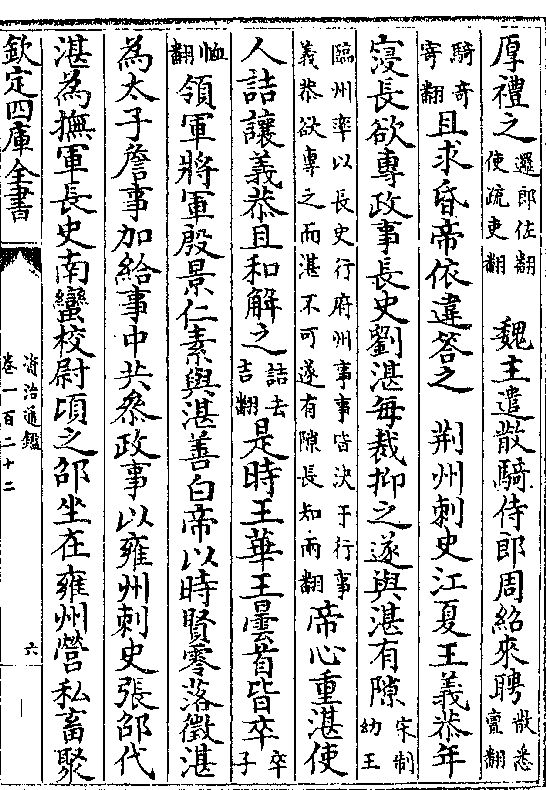 厚禮之邏郎佐翻使疏吏翻　魏主遣散騎侍郎周紹來聘散悉亶翻
騎奇寄翻且求昏帝依違答之　荆州刺史江夏王義恭年
寖長欲專政事長史劉湛每裁抑之遂與湛有隙宋制幼王
臨州率以長史行府州事事皆決于行事義恭欲專之而湛不可遂有隙長知兩翻帝心重湛使
人詰讓義恭且和解之詰去吉翻是時王華王曇首皆卒卒子
恤翻領軍將軍殷景仁素與湛善白帝以時賢零落徵湛
為太子詹事加給事中共參政事以雍州刺史張邵代
湛為撫軍長史南蠻校尉頃之邵坐在雍州營私畜聚
欽定四庫全書
資治通鑑
卷一百二十二
六